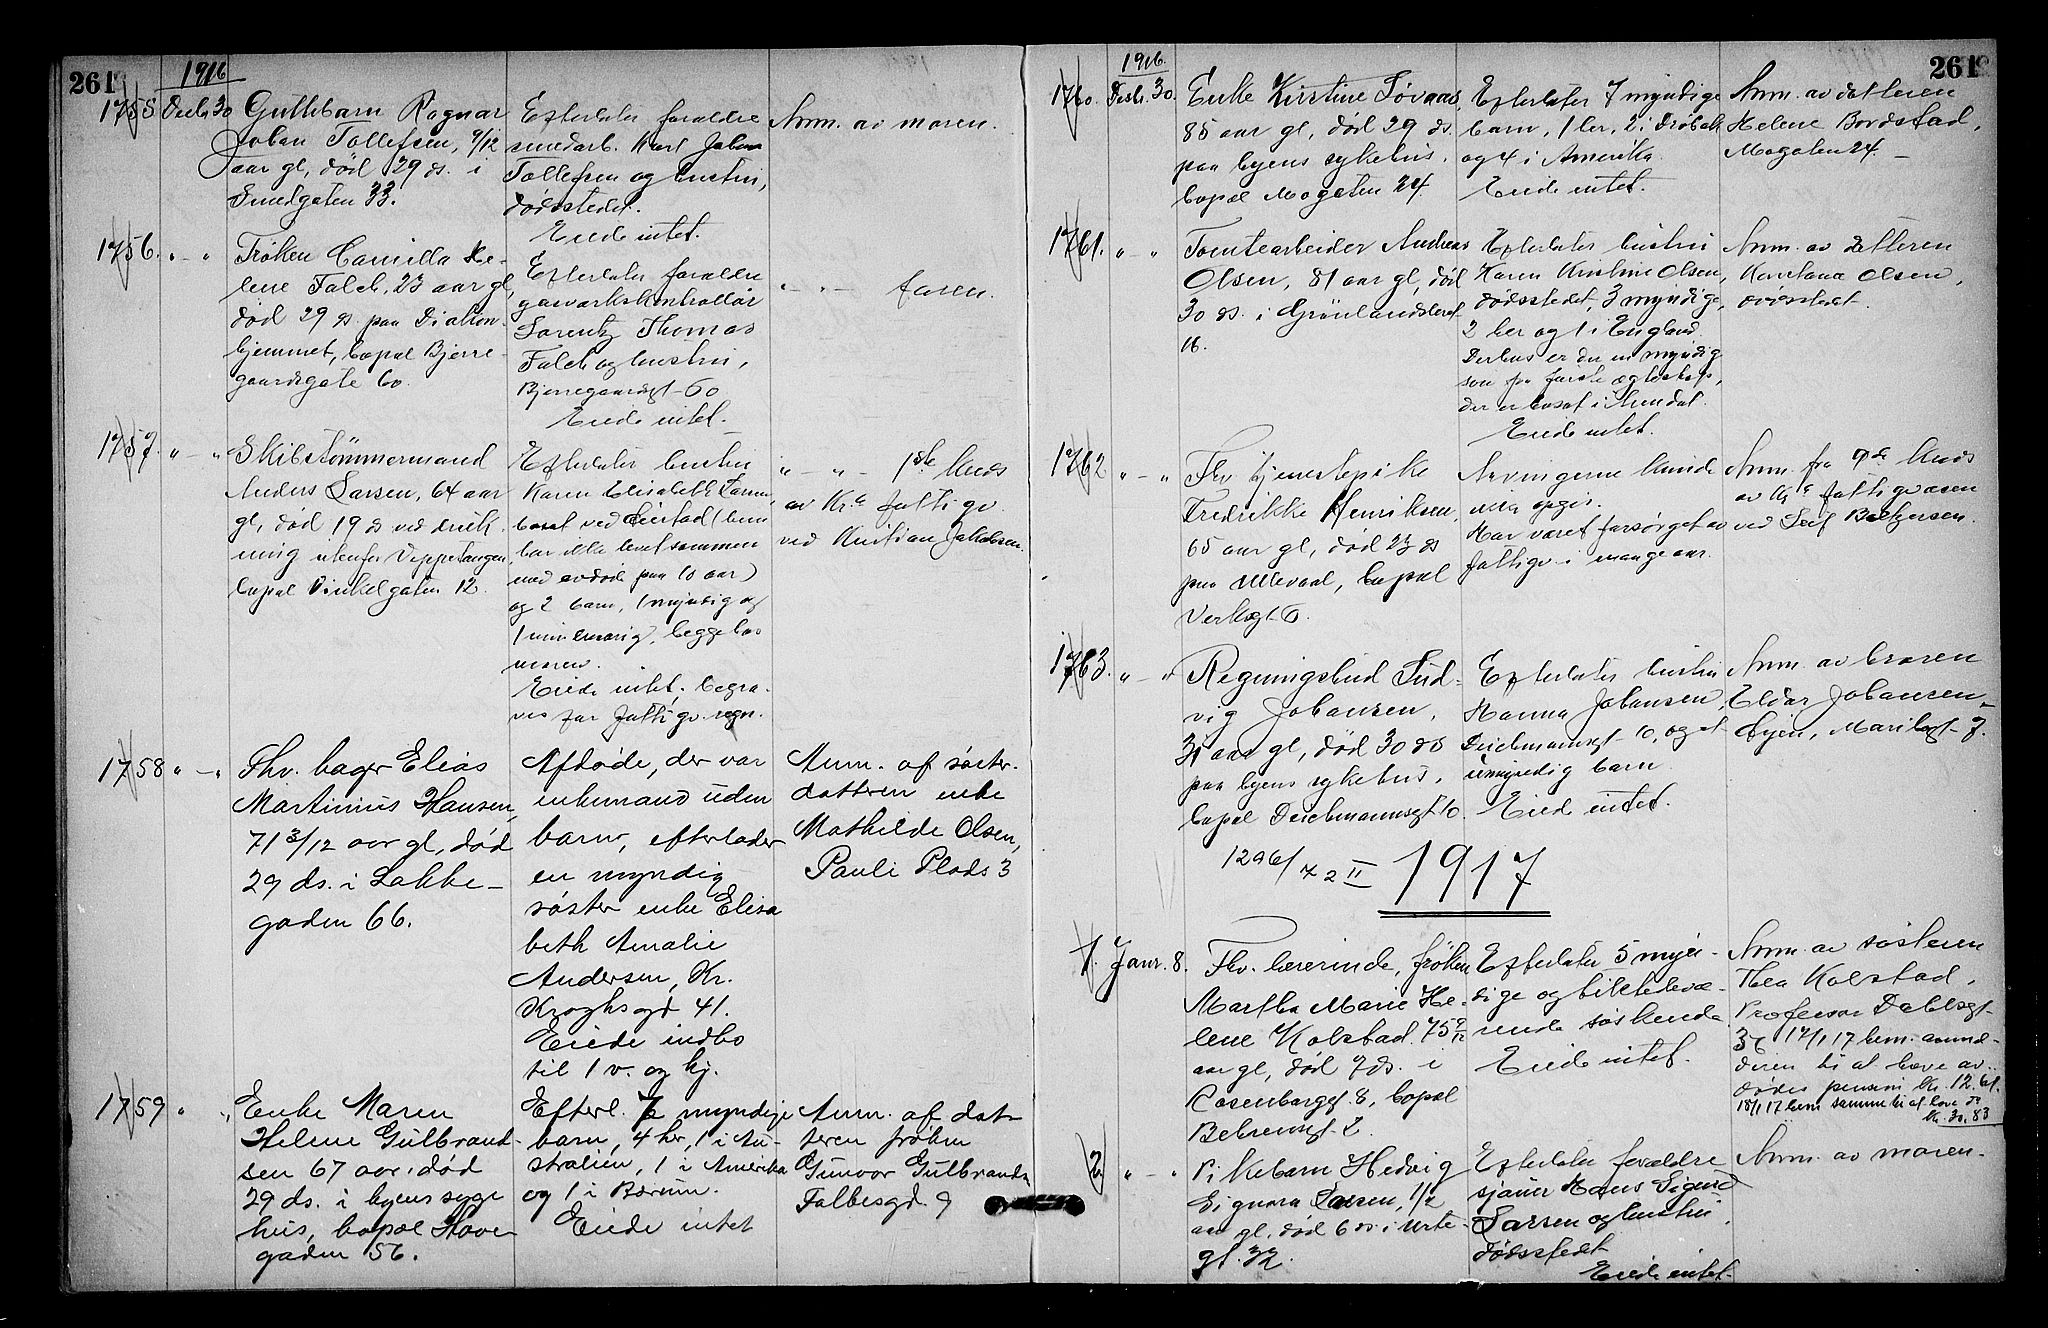 261
1916
1755 Decbr. 30
Guttebarn Ragnar
Johan Tollefsen, 9/12
aar gl, død 29 ds. i
Smedgaten 33.
Efterlater forældre
smedarb. Karl Johan
Tollefsen og hustru,
dødsstedet.
Eiede intet.
Anm. av moren.
1756. " - "
Frøken Camilla He-
lene Falch, 23 aar gl,
død 29 ds. paa Diakon-
hjemmet, bopæl Bjerre-
gaardsgate 60.
Efterlater forældre
gasverkskontrollør
Lorentz Thomas
Falch og hustru,
Bjerregaardsgt. 60
Eiede intet.
" - " - faren.
1757. " - "
Skibstømmermand
Anders Larsen, 64 aar
gl, død 19 ds ved druk-
ning utenfor Vippetangen
bopæl Vinkelgaten 12.
Efterlater hustru
Karen Elisabeth Larsen,
bosat ved (hun
har ikke levet sammen
med avdøde paa 10 aar)
og 2 barn, 1 myndig og
1 mindreaarig, begge hos
moren.
Eiede intet. Begra-
ves for fattigv. regn.
" - " - 1ste kreds
av Kr.a fattigv.
ved Kristian Jakobsen.
1758 " - "
Fhv. bager Elias
Martinius Hansen,
71 3/12 aar gl, død
29 ds. i Lakke-
gaden 66.
Afdøde, der var
enkemand uden
barn, efterlader
en myndig
søster enke Elisa
beth Amalie
Andersen, Kr.
Kroghsgd 41.
Eiede indbo
til 1 v. og kj.
Anm. af søster-
datteren enke
Mathilde Olsen,
Pauli Plads 3
1759 " "
Enke Maren
Helene Gulbrand-
sen 67 aar, død
29 ds. i byens syge
hus, bopæl Have
gaden 56.
Efterl. 7 myndige
barn, 4 her, 1 i Au-
stralien, 1 i Amerika
og 1 i Bærum.
Eiede intet
Anm. af dat-
teren frøken
Gunvor Gulbrands.
Falbesgd. 9
261
1916.
1760. Desbr. 30.
Enke Kirstine Løvaas
85 aar gl, død 29 ds.
paa byens sykehus.
bopæl Mogaten 24.
Efterlater 7 myndige
barn, 1 her, 2 i Drøbak
og 4 i Amerika.
Eiede intet.
Anm. av datteren
Helene Bordstad,
Mogaten 24. -
1761. " - "
Tomtearbeider Andreas
Olsen, 81 aar gl, død
30 ds. i Grønlandsleret
16.
Efterlater hustru
Karen Kristine Olsen,
dødsstedet, 3 myndige,
2 her og 1 i England.
Desuten er der en myndig
søn fra første ægteskap,
der er bosat i Arendal.
Eiede intet.
Anm. av datteren
Olsen,
dødsstedet.
1762 " - "
Fhv tjenestepike
Fredrikke Henriksen,
65 aar gl, død 23 ds
paa Ullevaal, bopæl
Verksgt 6.
Arvingerne kunde
ikke opgis.
Har været forsørget av
fattigv. i mange aar.
Anm. fra 7de kreds
av Kr.a fattigvæsen
ved Leif Børgersen.
1763. " - "
Regningsbud Lud-
vig Johansen,
31 aar gl, død 30 ds
paa byens sykehus,
bopæl Deichmannsgt 10.
Efterlater hustru
Hanna Johansen,
Deichmannsgt. 10, og et
umyndig barn.
Eiede intet.
Anm. av broren
Eldar Johansen,
Maribogt. 7.
1296/42 II 1917
1. Janr. 8.
Fhv. lærerinde, frøken
Martha Marie He-
lene Kolstad. 75 9/12
aar gl, død 7 ds. i
Rosenborggt. 8, bopæl
Behrensgt. 2
Efterlater 5 myn-
dige og tilstedevæ-
rende søskende.
Eiede intet.
Anm. av søsteren
Thea Kolstad,
Professor Dahlsgt.
36 17/1 17 bem. anmel-
deren til at hæve av-
dødes pension kr. 12.61.
18/1 17 bem samme til at hæve ds
kr. 30.83
2 " - "
Pikebarn Hedvig
Signora Larsen, 1/2
aar gl, død 6 ds. i Urte-
gt. 32.
Efterlater forældre
sjauer Hans Sigurd
Larsen og hustru,
dødsstedet
Eiede intet.
Anm. av moren.